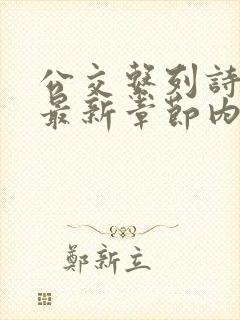 公交繫列詩
最新章節内
鄭新立